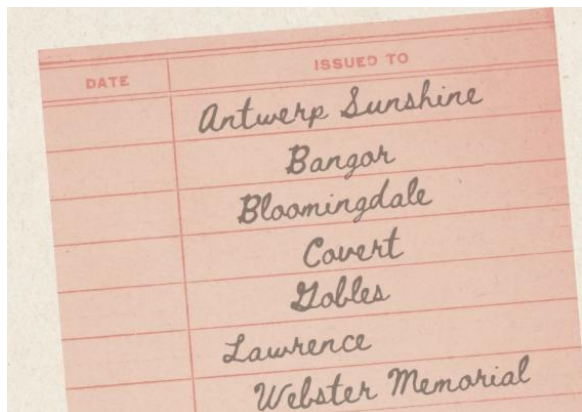 DATE ISSUED TO
Antwerp Sunshine
Bangor
Bloomingdale
Covert
Gobles
Lawrence
Webster Memorial